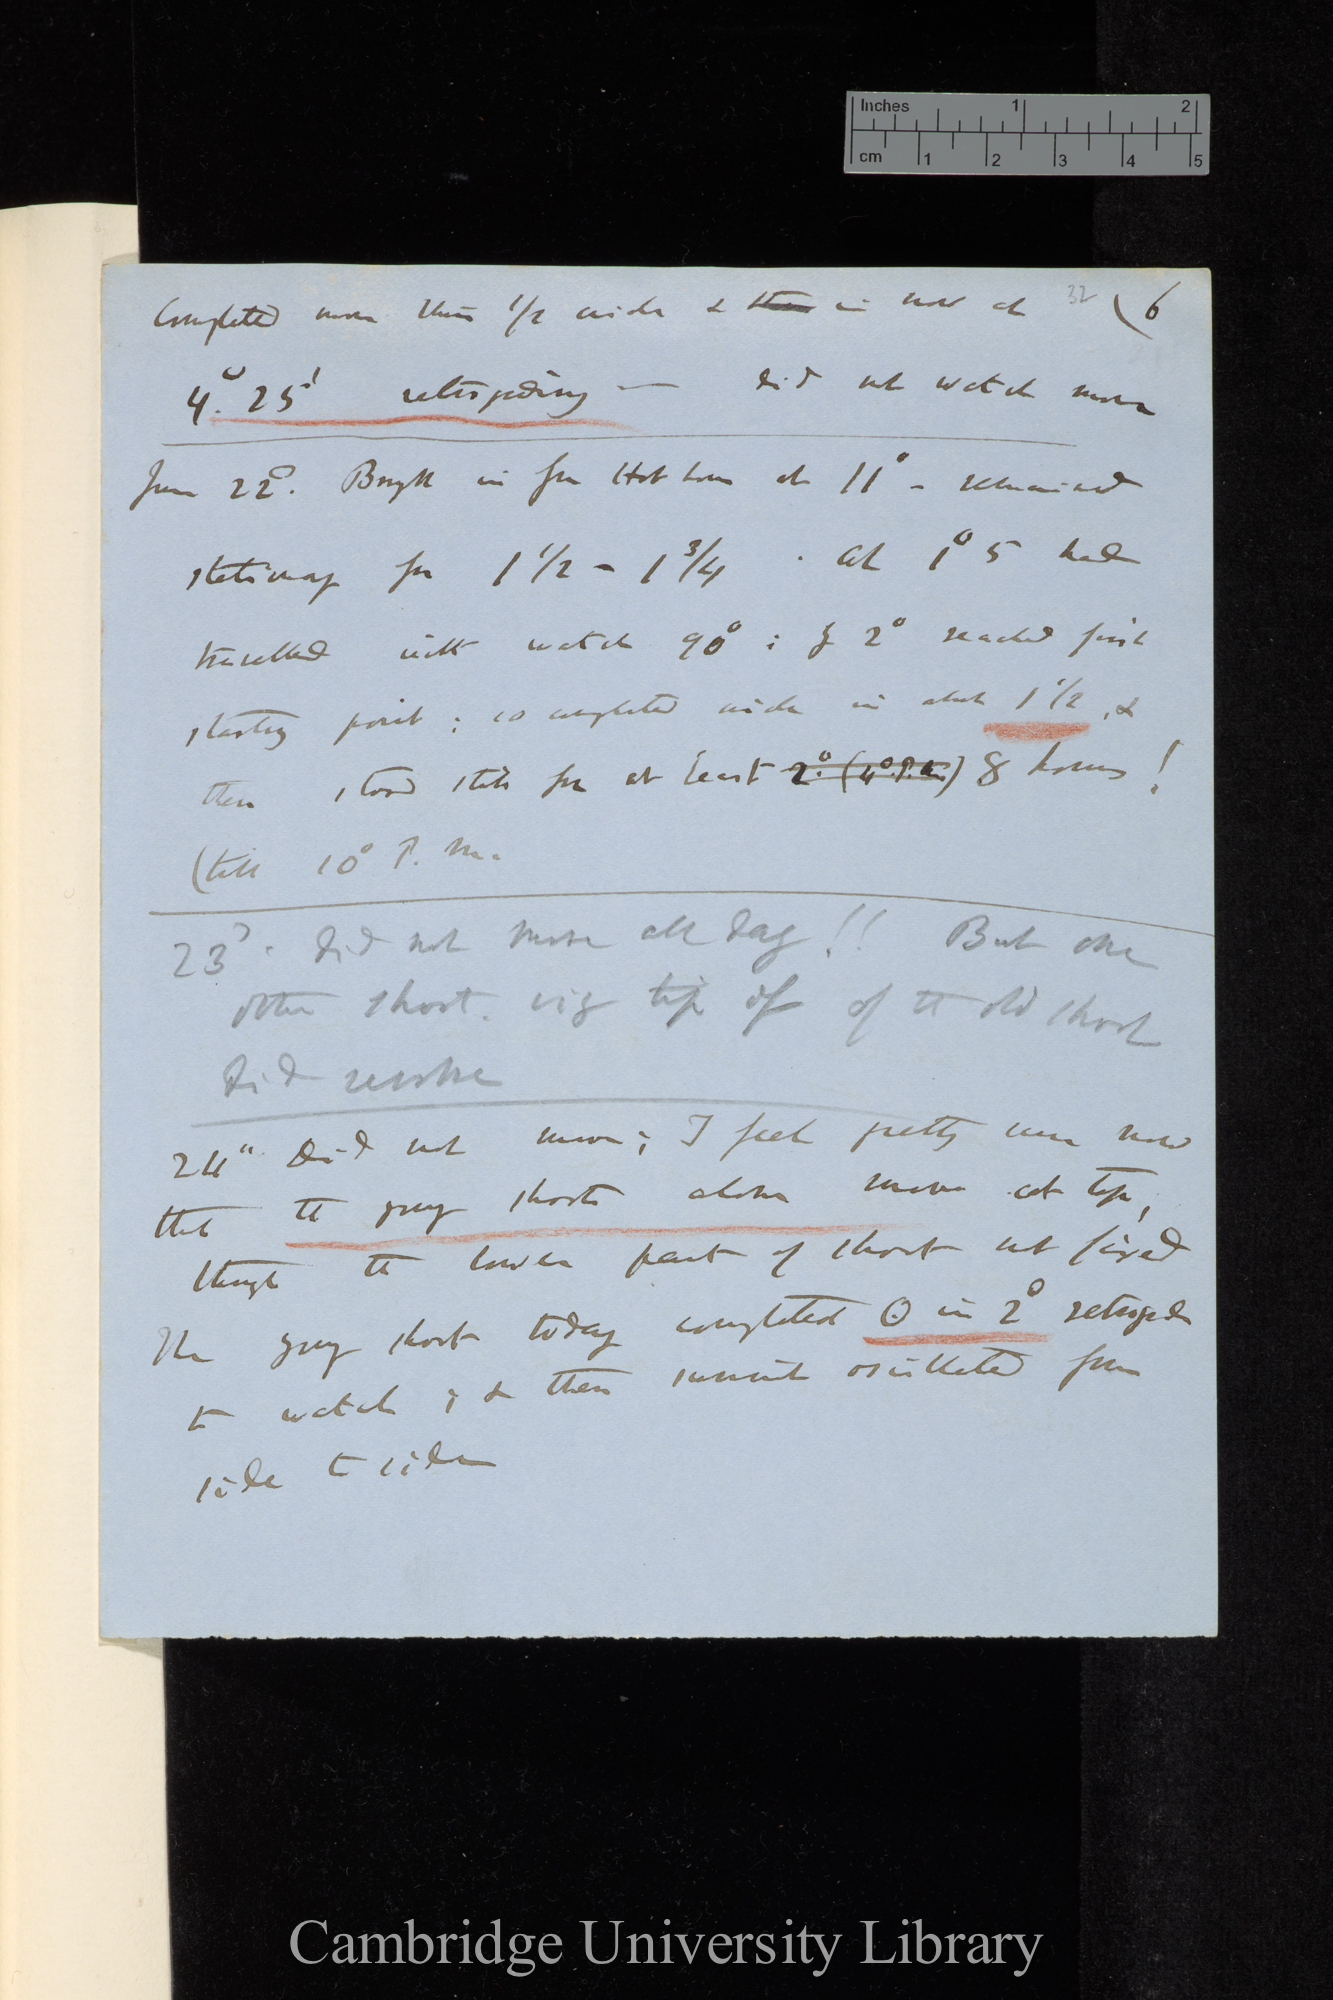 Inches 1 2
cm 1 2 3 4 5
32 (6
Completed more than 1/2 circle & ~~then~~ is now at
4° 25' retrograding — did not watch more
June 22°. Brought in from Hot house at 11° – remained
stationary for 1 1/2 – 1 3/4 . at 1° 5 had
travelled with watch 90° ; by 2° reached first
starting point ; so completed circle in about 1 1/2, &
then stood still for at least ~~2°. (4° P.M.)~~ 8 hours !
(till 10° P. M.
23°. Did not move all day !! But the
other shoot. viz tip of of the old shoot
did revolve
24" Did not move ; I feel pretty sure now
that the young shoots alone move at tip,
though the lower part of shoot not fixed
The young shoot today completed ʘ in 2° retrograde
to watch ; & then summit oscillated from
side to side
Cambridge University Library